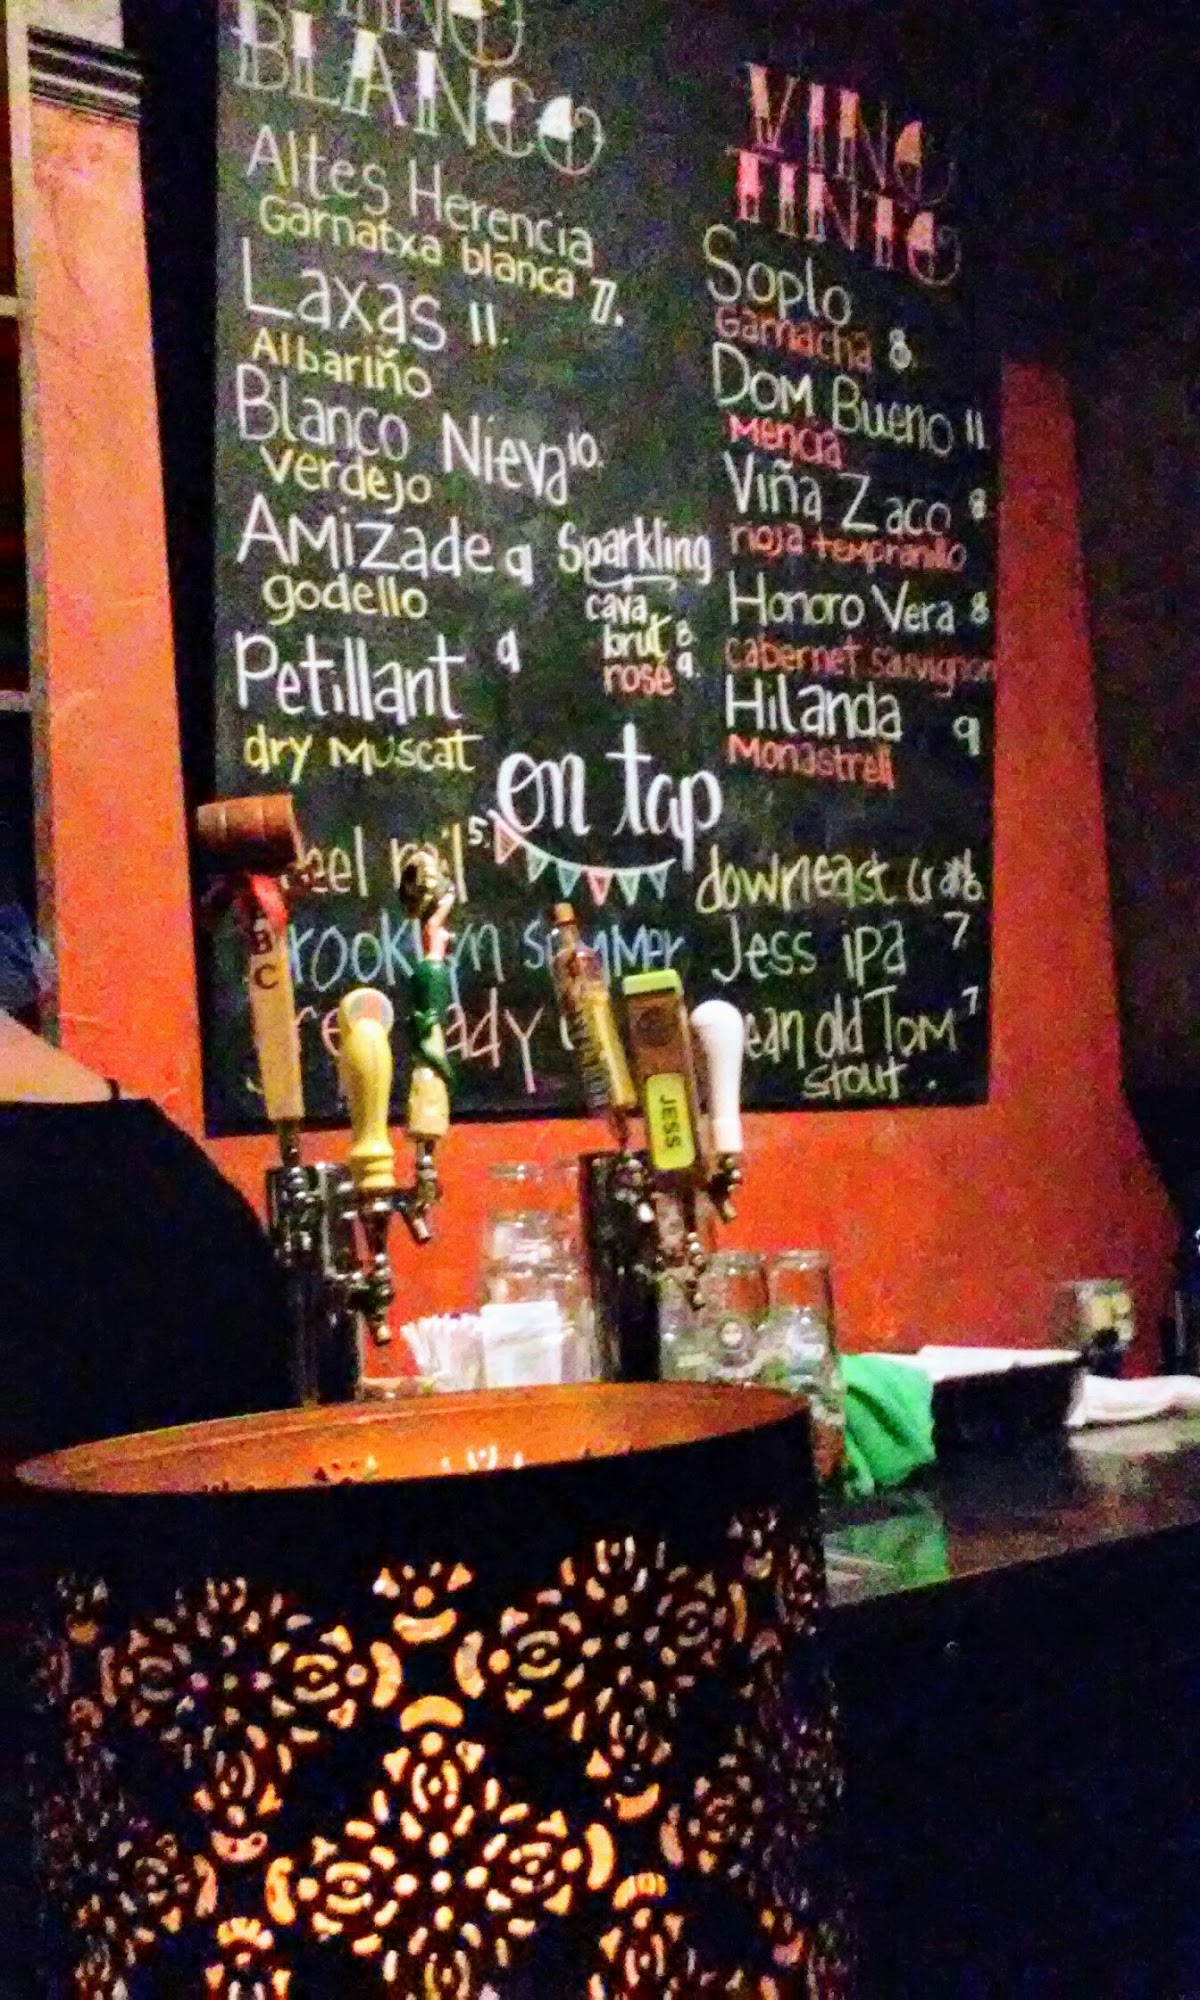 BLANCO
Altes Herencia
Garnatxa blanca 7.
Laxas 11.
Albariño
Blanco Nieva 10.
verdejo
Amizade 9
godello
Petillant 9
dry Muscat
Sparkling
cava
brut 8.
rosé 9.
VINO
TINTO
Soplo
Garnacha 8.
Dom Bueno 11
Mencia
Viña Zaco 8
rioja tempranillo
Honoro Vera 8
cabernet sauvignon
Hilanda 9
Monastrell
on tap
5.
downeast
Jess ipa 7
old Tom 7
stout.
BC
JESS